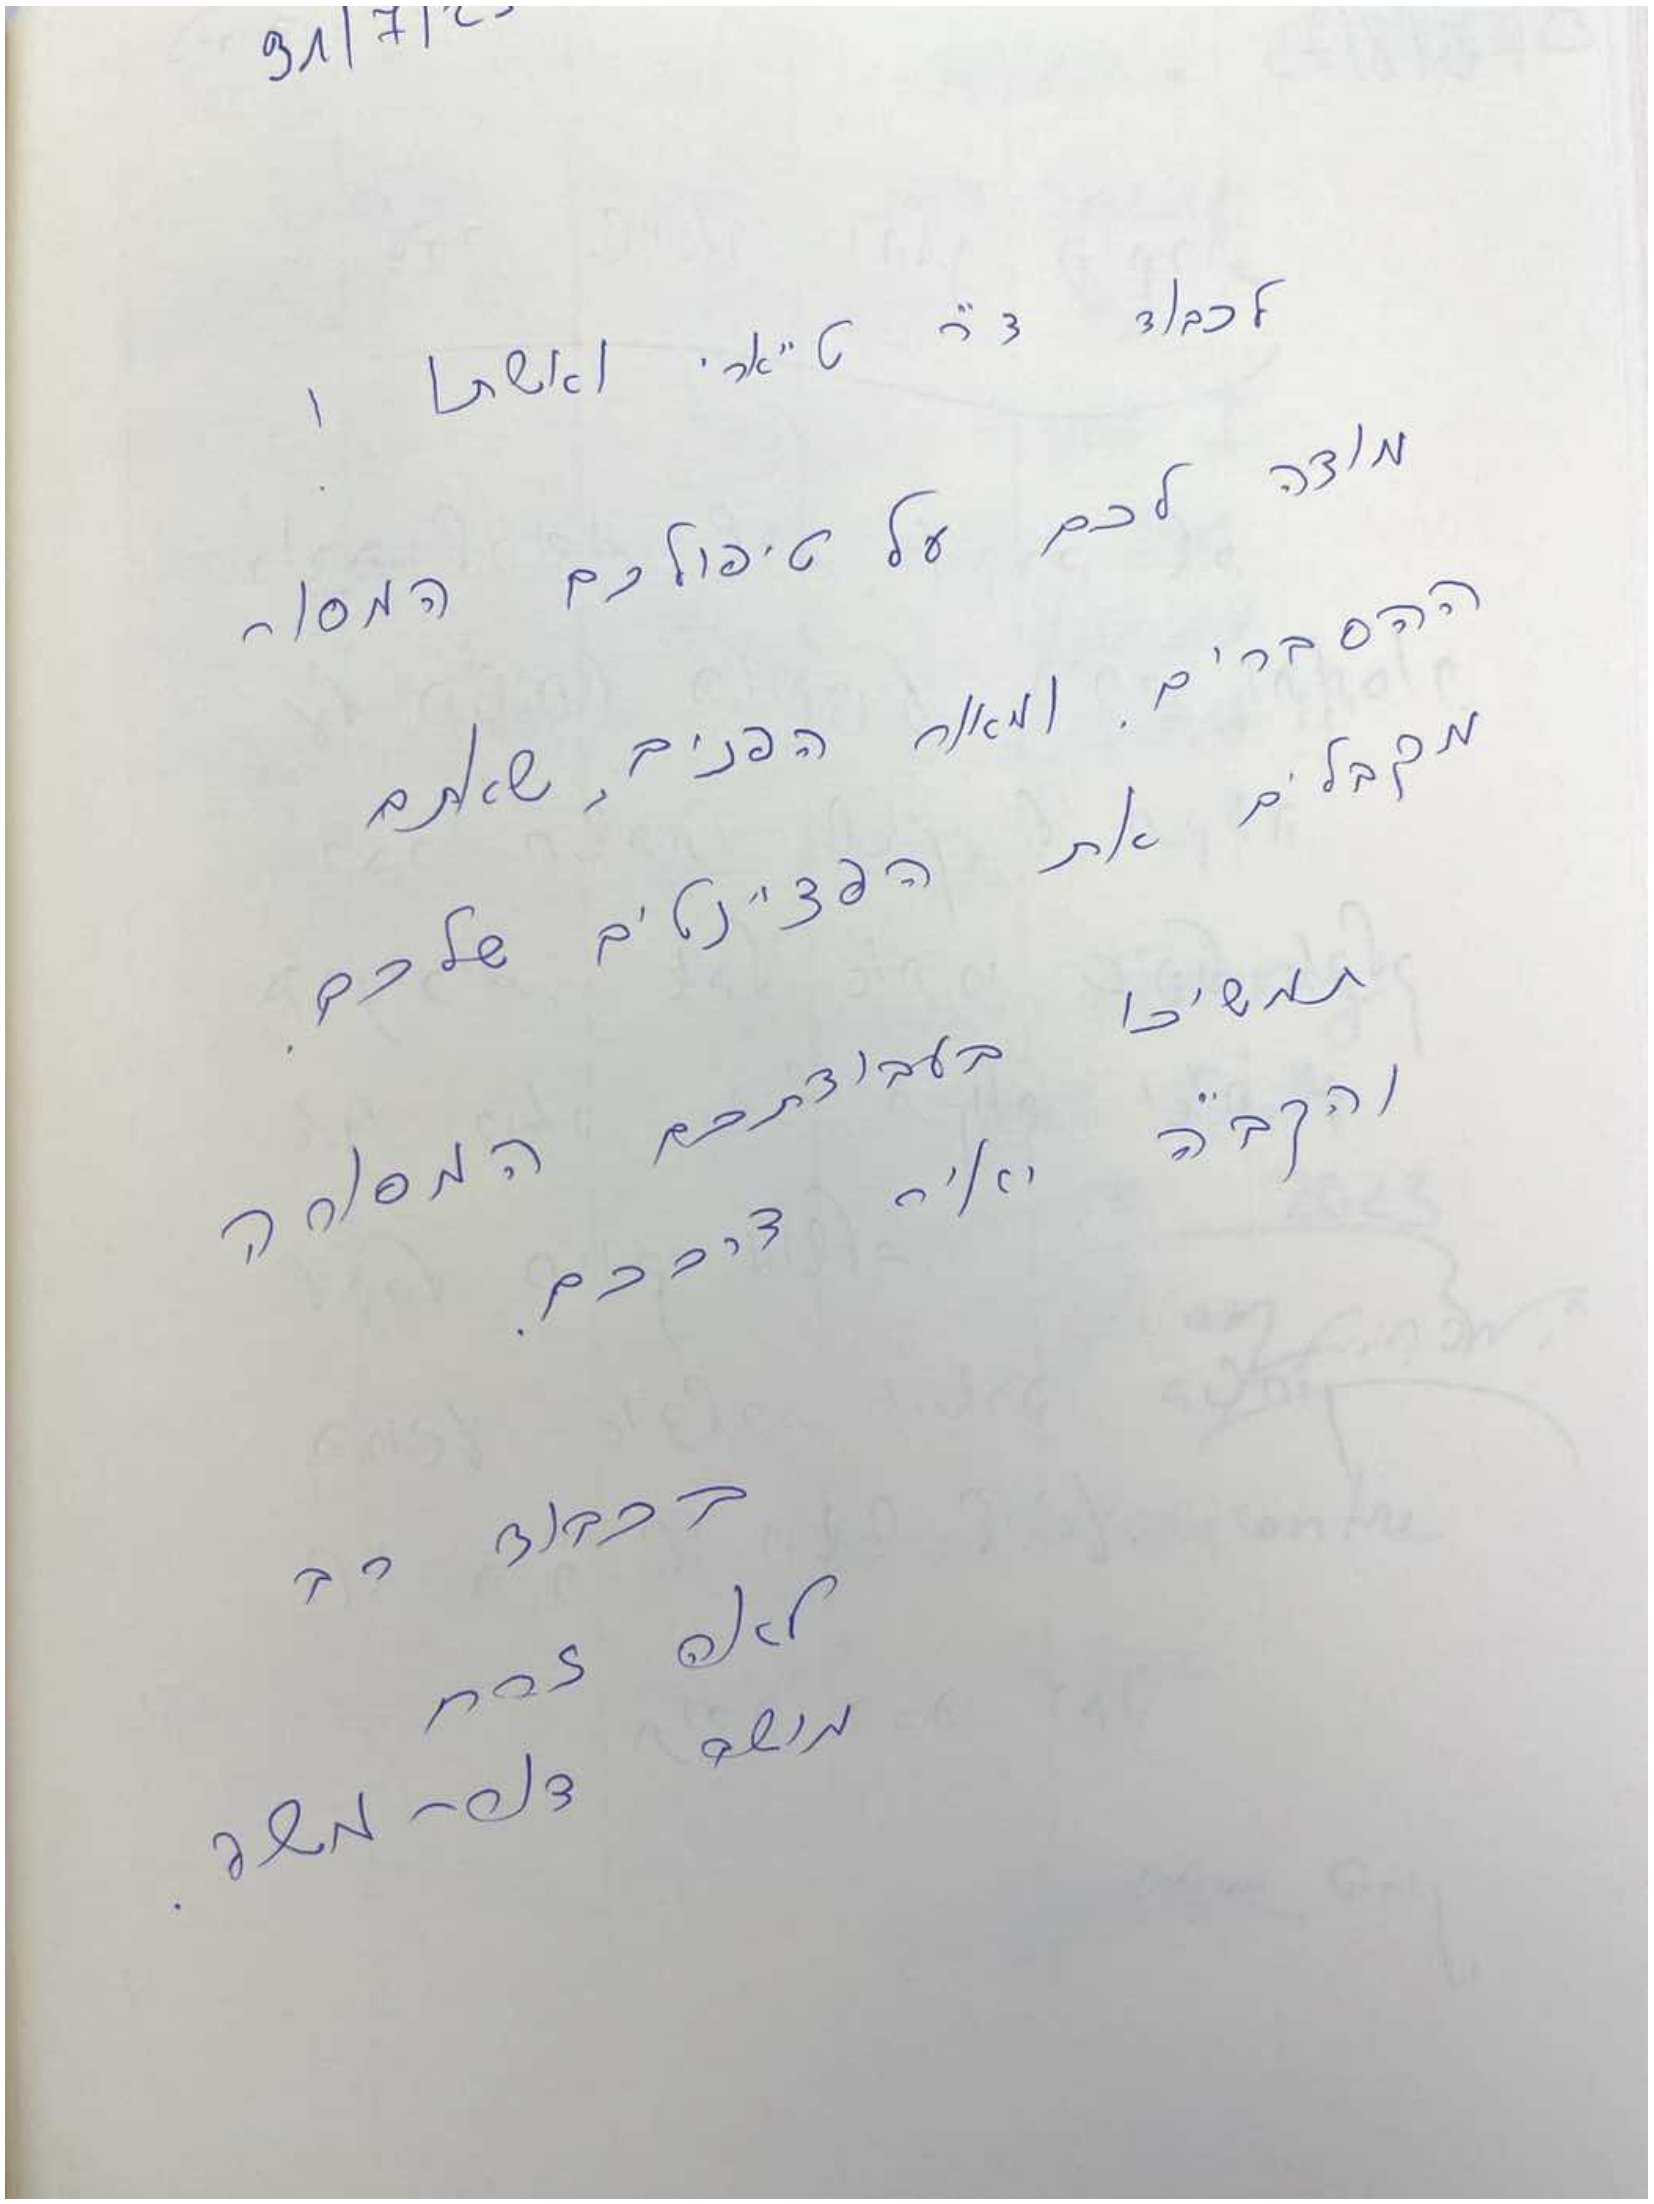 31/7/23
לכבוד ד"ר טיארי ואשתו !
מודה לכם על טיפולכם המסור
ההסברים. ומאור הפנים, שאתם
מקבלים את הפציינטים שלכם.
תמשיכו בעבודתכם המסורה
והקב"ה יאיר דרככם.
בכבוד רב
לאה זרח
מושב